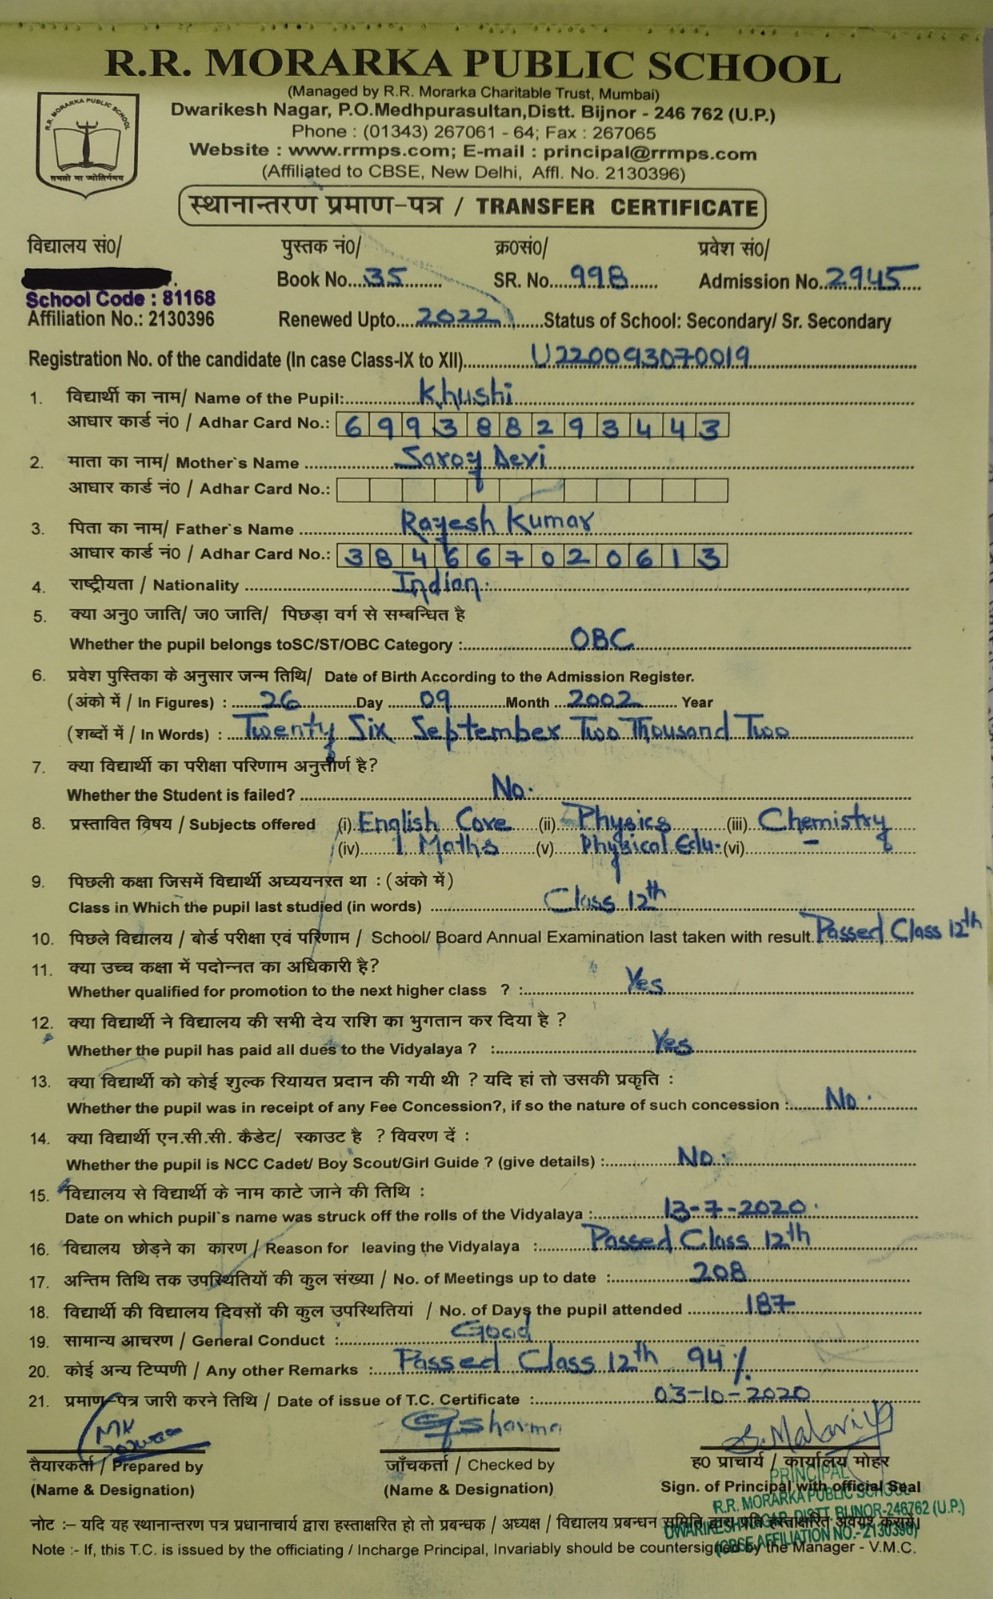 R.R. MORARKA PUBLIC SCHOOL
(Managed by R.R. Morarka Charitable Trust, Mumbai)
Dwarikesh Nagar, P.O.Medhpurasultan,Distt. Bijnor - 246 762 (U.P.)
Phone : (01343) 267061 - 64; Fax : 267065
Website : www.rrmps.com; E-mail : principal@rrmps.com
(Affiliated to CBSE, New Delhi, Affl. No. 2130396)
R.R. MORARKA PUBLIC SCHOOL
तमसो मा ज्योतिर्गमय
स्थानान्तरण प्रमाण-पत्र / TRANSFER CERTIFICATE
विद्यालय सं0/ पुस्तक नं0/ क्र0सं0/ प्रवेश सं0/
Book No. 35 SR. No. 998 Admission No. 2945
School Code : 81168
Affiliation No.: 2130396 Renewed Upto 2022 Status of School: Secondary/ Sr. Secondary
Registration No. of the candidate (In case Class-IX to XII) U220093070019
1. विद्यार्थी का नाम/ Name of the Pupil: Khushi
आधार कार्ड नं0 / Adhar Card No.: 699388293443
2. माता का नाम/ Mother`s Name Saroj Devi
आधार कार्ड नं0 / Adhar Card No.:
3. पिता का नाम/ Father`s Name Rajesh Kumar
आधार कार्ड नं0 / Adhar Card No.: 384667020613
4. राष्ट्रीयता / Nationality Indian.
5. क्या अनु0 जाति/ ज0 जाति/ पिछड़ा वर्ग से सम्बन्धित है
Whether the pupil belongs toSC/ST/OBC Category : OBC
6. प्रवेश पुस्तिका के अनुसार जन्म तिथि/ Date of Birth According to the Admission Register.
(अंको में / In Figures) : 26 Day 09 Month 2002 Year
(शब्दों में / In Words) : Twenty Six September Two Thousand Two
7. क्या विद्यार्थी का परीक्षा परिणाम अनुत्तीर्ण है?
Whether the Student is failed? No.
8. प्रस्तावित विषय / Subjects offered (i) English Core (ii) Physics (iii) Chemistry
(iv) Maths (v) Physical Edu. (vi) –
9. पिछली कक्षा जिसमें विद्यार्थी अघ्ययनरत था : (अंको में)
Class in Which the pupil last studied (in words) Class 12th
10. पिछले विद्यालय / बोर्ड परीक्षा एवं परिणाम / School/ Board Annual Examination last taken with result Passed Class 12th
11. क्या उच्च कक्षा में पदोन्नत का अधिकारी है?
Whether qualified for promotion to the next higher class ? : Yes
12. क्या विद्यार्थी ने विद्यालय की सभी देय राशि का भुगतान कर दिया है ?
Whether the pupil has paid all dues to the Vidyalaya ? : Yes
13. क्या विद्यार्थी को कोई शुल्क रियायत प्रदान की गयी थी ? यदि हां तो उसकी प्रकृति :
Whether the pupil was in receipt of any Fee Concession?, if so the nature of such concession : No.
14. क्या विद्यार्थी एन.सी.सी. कैडेट/ स्काउट है ? विवरण दें :
Whether the pupil is NCC Cadet/ Boy Scout/Girl Guide ? (give details) : No.
15. विद्यालय से विद्यार्थी के नाम काटे जाने की तिथि :
Date on which pupil`s name was struck off the rolls of the Vidyalaya : 13-7-2020.
16. विद्यालय छोड़ने का कारण / Reason for leaving the Vidyalaya : Passed Class 12th
17. अन्तिम तिथि तक उपस्थितियों की कुल संख्या / No. of Meetings up to date : 208
18. विद्यार्थी की विद्यालय दिवसों की कुल उपस्थितियां / No. of Days the pupil attended 187
19. सामान्य आचरण / General Conduct : Good
20. कोई अन्य टिप्पणी / Any other Remarks : Passed Class 12th 94%
21. प्रमाण-पत्र जारी करने तिथि / Date of issue of T.C. Certificate : 03-10-2020
तैयारकर्ता / Prepared by जाँचकर्ता / Checked by ह0 प्राचार्य / कार्यालय मोहर
(Name & Designation) (Name & Designation) Sign. of Principal with official Seal
PRINCIPAL
R.R. MORARKA PUBLIC SCHOOL
DWARIKESH NAGAR, DIST. BIJNOR-246762 (U.P.)
(CBSE AFFILIATION NO.-2130396)
नोट :– यदि यह स्थानान्तरण पत्र प्रधानाचार्य द्वारा हस्ताक्षरित हो तो प्रबन्धक / अध्यक्ष / विद्यालय प्रबन्धन समिति द्वारा प्रति हस्ताक्षरित अवश्य करायें।
Note :- If, this T.C. is issued by the officiating / Incharge Principal, Invariably should be countersigned by the Manager - V.M.C.